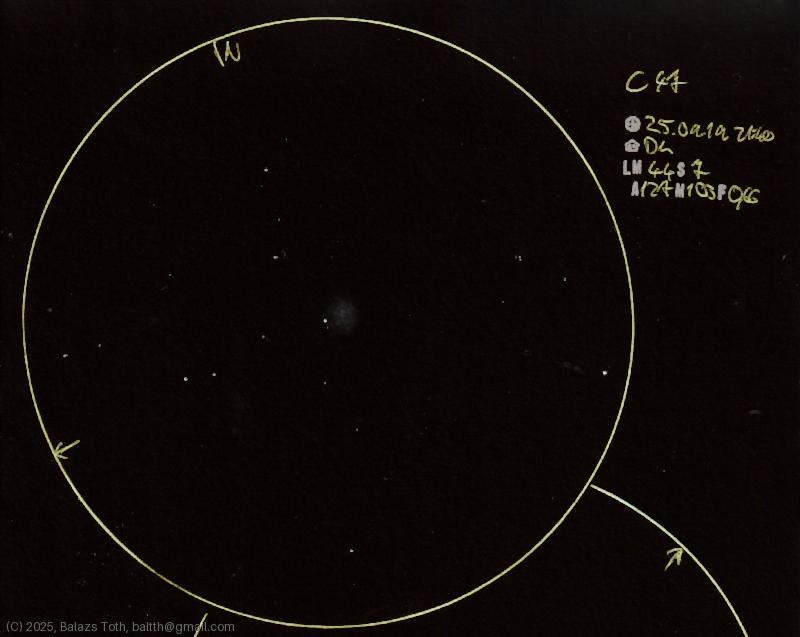 N
C 47
25.09.19
LM 4.4 S 7
A127 M103 F0,66
(C) 2025, Balazs Toth, baltth@gmail.com